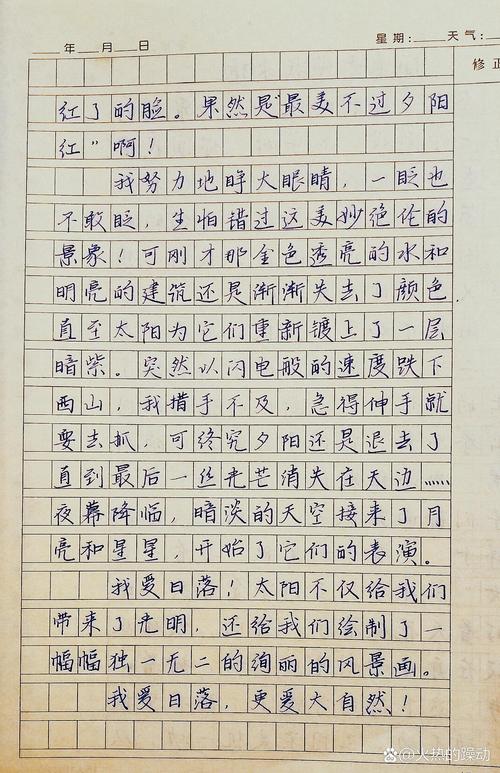 年 月 日 星期: 天气:
修正
红了的脸。果然是"最美不过夕阳
红"啊!
我努力地睁大眼睛,一眨也
不敢眨,生怕错过这美妙绝伦的
景象!可刚才那金色透亮的水和
明亮的建筑还是渐渐失去了颜色
直至太阳为它们重新镀上了一层
暗紫。突然以闪电般的速度跌下
西山,我措手不及,急得伸手就
要去抓,可终究夕阳还是退去了
直到最后一丝光芒消失在天边……
夜幕降临,暗淡的天空接来了月
亮和星星,开始了它们的表演。
我爱日落!太阳不仅给我们
带来了光明,还给我们绘制了一
幅幅独一无二的绚丽的风景画。
我爱日落,更爱大自然!
火热的躁动